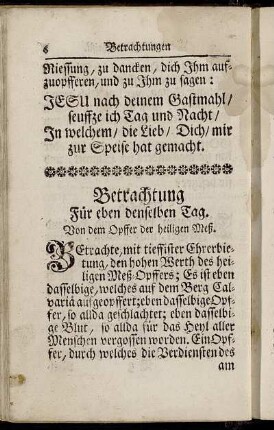 6 Betrachtungen
Niessung, zu dancken, dich Jhm auf-
zuopfferen, und zu Jhm zu sagen:
JESU nach deinem Gastmahl/
seuffze ich Tag und Nacht/
Jn welchem/ die Lieb/ Dich/ mir
zur Speise hat gemacht.
Betrachtung
Für eben denselben Tag.
Von dem Opffer der heiligen Meß.
BEtrachte, mit tieffister Ehrerbie-
tung, den hohen Werth des hei-
ligen Meß-Opffers; Es ist eben
dasselbige, welches auf dem Berg Cal-
variä aufgeopffert; eben dasselbige Opf-
fer, so allda geschlachtet; eben dasselbi-
ge Blut, so allda für das Heyl aller
Menschen vergossen worden. Ein Opf-
fer, durch welches die Verdiensten des
am